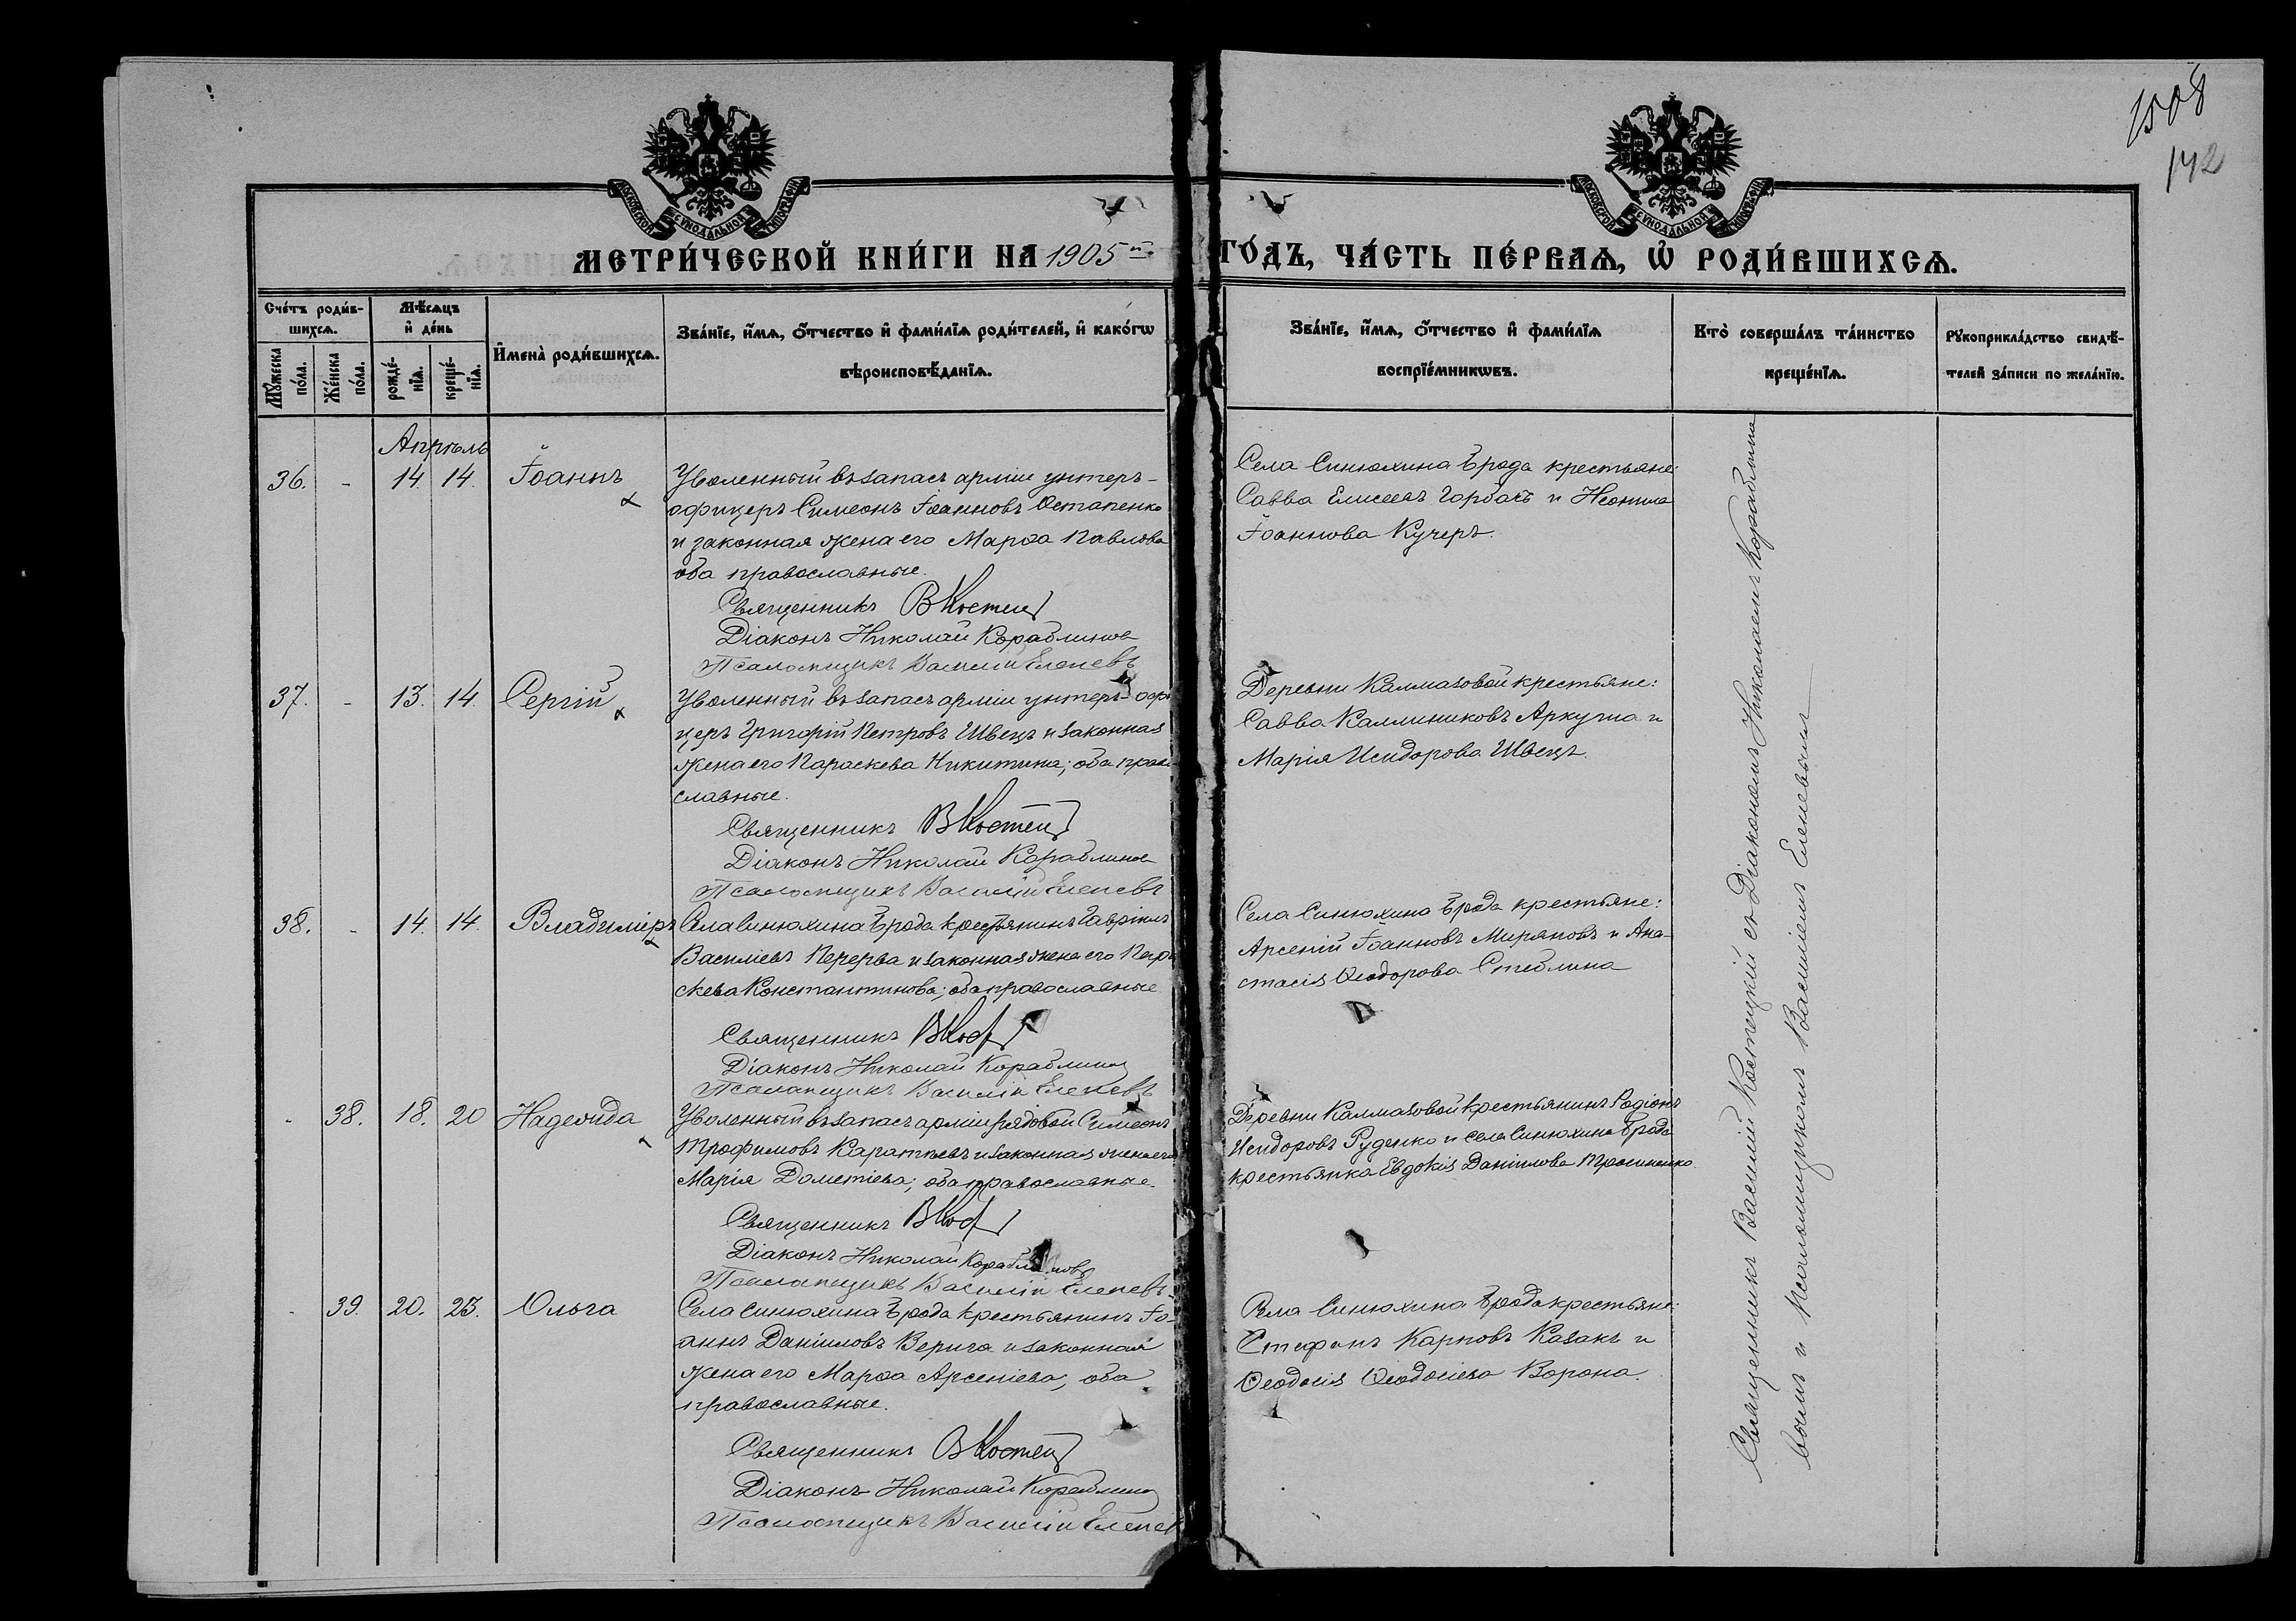 1508
142
МОСКОВСКОЙ СѴНОДАЛЬНОЙ ТИПОГРАФІИ
МОСКОВСКОЙ СѴНОДАЛЬНОЙ ТИПОГРАФІИ
МЕТРИ́ЧЕСКОЙ КНИ́ГИ НА 1905 й ГО́ДЪ, ЧА́СТЬ ПЕ́РВАѦ, Ѽ РОДИ́ВШИХСѦ.
Сче́тъ роди́в-
шихсѧ.
Мꙋ́жеска
по́ла.
Же́нска
по́ла.
Мѣ́сѧцъ
и҆ де́нь
рожде́-
нїѧ.
креще́-
нїѧ.
И҆мена̀ роди́вшихсѧ.
Зва́нїе, и҆́мѧ, ѻ҆́тчество и҆ фами́лїѧ роди́телей, и҆ како́гѡ
вѣроисповѣ́данїѧ.
Зва́нїе, и҆́мѧ, ѻ҆́тчество и҆ фами́лїѧ
воспрїе́мникѡвъ.
Кто̀ соверша́лъ та́инство
креще́нїѧ.
Рꙋкоприкла́дство свидѣ́-
телей за́писи по жела́нїю.
Апрѣль
36. - 14 14. Іоаннъ
Уволенный въ запасъ арміи унтеръ-
офицеръ Симеонъ Іоанновъ Остапенко
и законная жена его Марѳа Павлова
оба православные.
Священникъ В Костец
Діаконъ Николай Кораблинов
Псаломщикъ Василій Еленевъ
Села Синюхина Брода крестьяне:
Савва Елисеевъ Горбачъ и Неонила
Іоаннова Кучеръ.
37. - 13. 14. Сергій
Уволенный въ запасъ арміи унтеръ-офи
церъ Григорій Петровъ Швецъ и законная
жена его Параскева Никитина; оба право-
славные.
Священникъ В Костец
Діаконъ Николай Кораблинов
Псаломщикъ Василій Еленевъ
Деревни Калмазовой крестьяне:
Савва Каллиниковъ Аркуша и
Марія Исидорова Швецъ.
38. - 14. 14. Владиміръ
Села Синюхина Брода крестьянинъ Гавріилъ
Василіевъ Перерва и законная жена его Пара
скева Константинова; оба православные
Священникъ В Кос
Діаконъ Николай Кораблинов
Псаломщикъ Василій Еленевъ
Села Синюхина Брода крестьяне:
Арсеній Іоанновъ Миряновъ и Ана-
стасія Ѳеодорова Стеблина
- 38. 18. 20 Надежда
Уволенный въ запасъ арміи рядовой Симеонъ
Трофимовъ Каратѣевъ и законная жена его
Марія Дометіева; оба православные.
Священникъ В Кос
Діаконъ Николай Кораблинов
Псаломщикъ Василій Еленевъ
Деревни Калмазовой крестьянинъ Родіонъ
Исидоровъ Руденко и села Синюхина Брода
крестьянка Евдокія Даніилова Тросиненко.
- 39. 20. 23. Ольга
Села Синюхина Брода крестьянинъ Іо-
аннъ Даніиловъ Верига и законная
жена его Марѳа Арсеніева; оба
православные.
Священникъ В Костец
Діаконъ Николай Кораблинов
Псаломщикъ Василій Еленев
Села Синюхина Брода крестьяне:
Стефанъ Карповъ Казакъ и
Ѳеодосія Ѳеодосіева Ворона.
Священникъ Василій Костецкій съ Діакономъ Николаемъ Кораблино
вымъ и Псаломщикомъ Василіемъ Еленевымъ